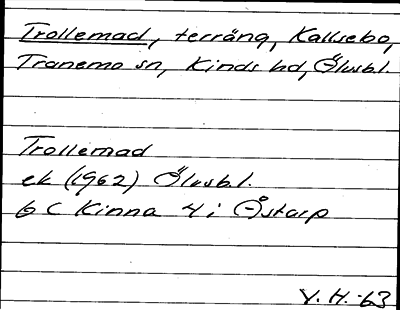 Trollemad, terräng, Kallsebo,
Tranemo sn, Kinds hd, Älvsb.l.
Trollemad
ek (1962) Älvsb.l.
6 C Kinna 4 i Åstarp
V. H. -63